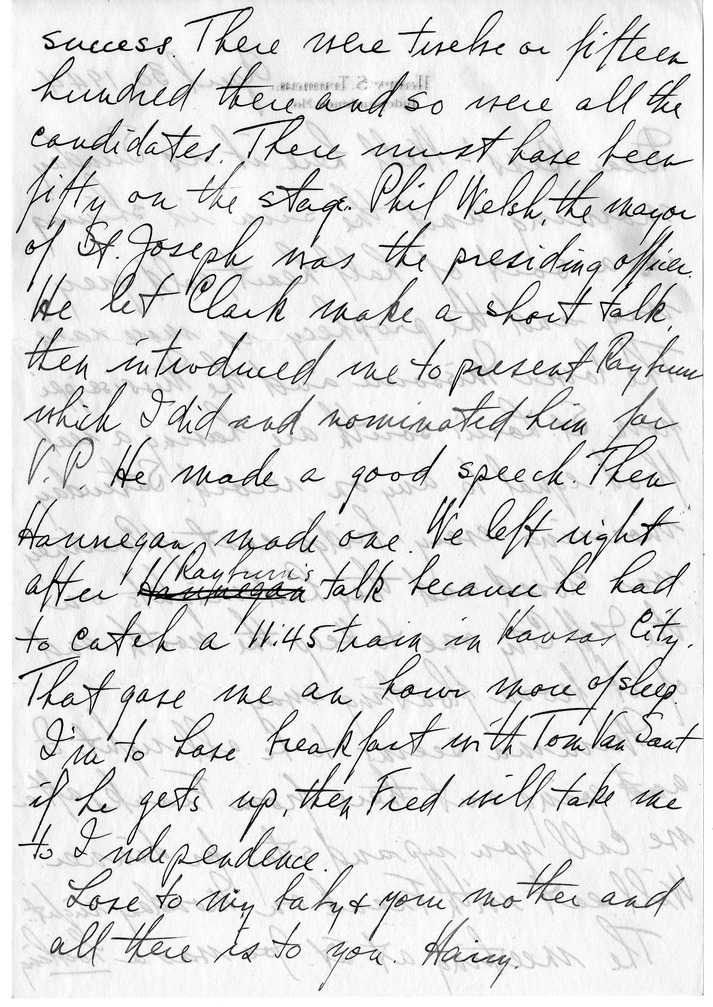 success. There were twelve or fifteen
hundred there and so were all the
candidates. There must have been
fifty on the stage. Phil Welsh, the mayor
of St. Joseph was the presiding officer.
He let Clark make a short talk,
then introduced me to present Rayburn
which I did and nominated him for
V.P. He made a good speech. Then
Hannegan made one. We left right
after Hannegan Rayburn's talk because he had
to catch a 11:45 train in Kansas City.
That gave me an hour more of sleep.
I'm to have breakfast with Tom Van Sant
if he gets up, then Fred will take me
to Independence.
Love to my baby & your mother and
all there is to you. Harry.